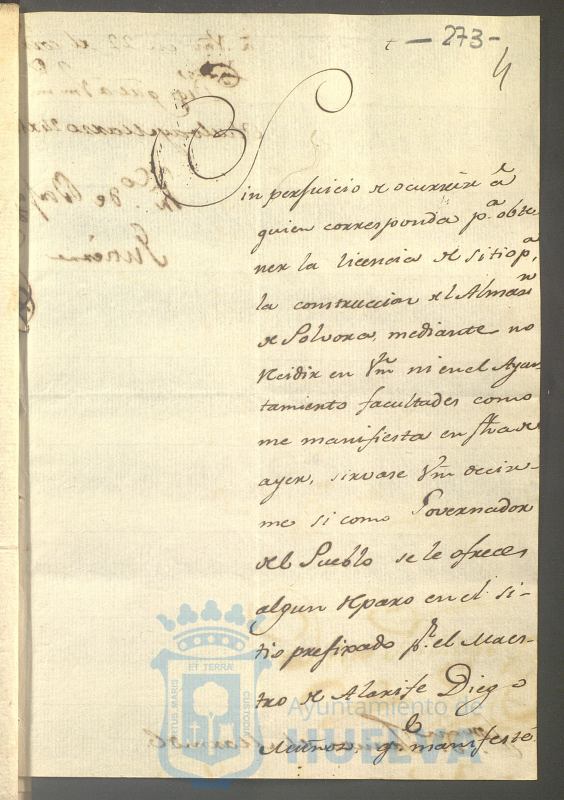 t — 273 —
4
Sin perjuicio de ocurrir a
quien corresponda pª obte
ner la licencia de sitio pª
la construccion del Almaⁿ
de Polvora, mediante no
recidir en Vm ni en el Ayun-
tamiento facultades como
me manifiesta en su de
ayer, sirvase Vm decir-
me si como Governador
del Pueblo se le ofrece
algun reparo en el si-
tio prefixado pr. el Maes-
tro de Alarife Diego
Muñoz, qe manifesté
ET TERRÆ
PORTUS MARIS
CUSTODIA
Ayuntamiento de
HUELVA